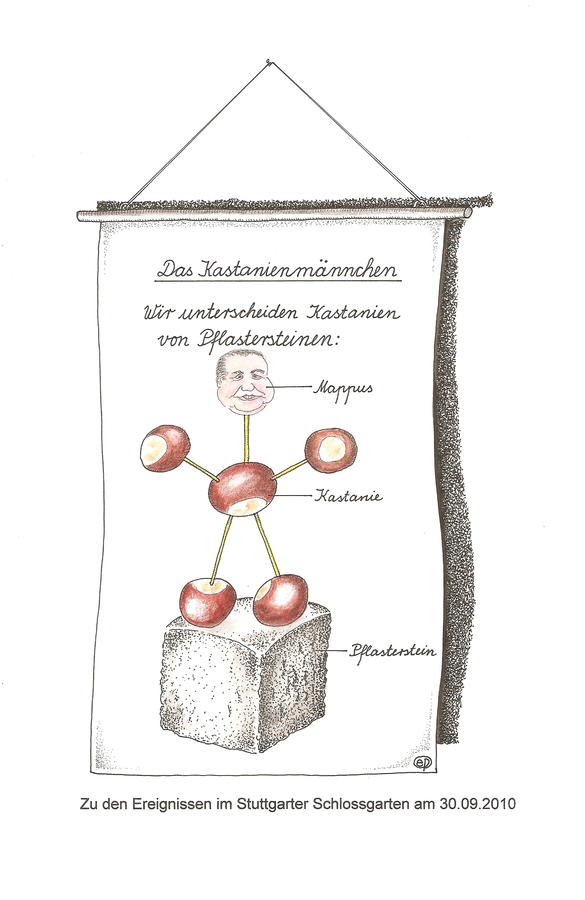 Das Kastanienmännchen
Wir unterscheiden Kastanien
von Pflastersteinen:
Mappus
Kastanie
Pflasterstein
Zu den Ereignissen im Stuttgarter Schlossgarten am 30.09.2010